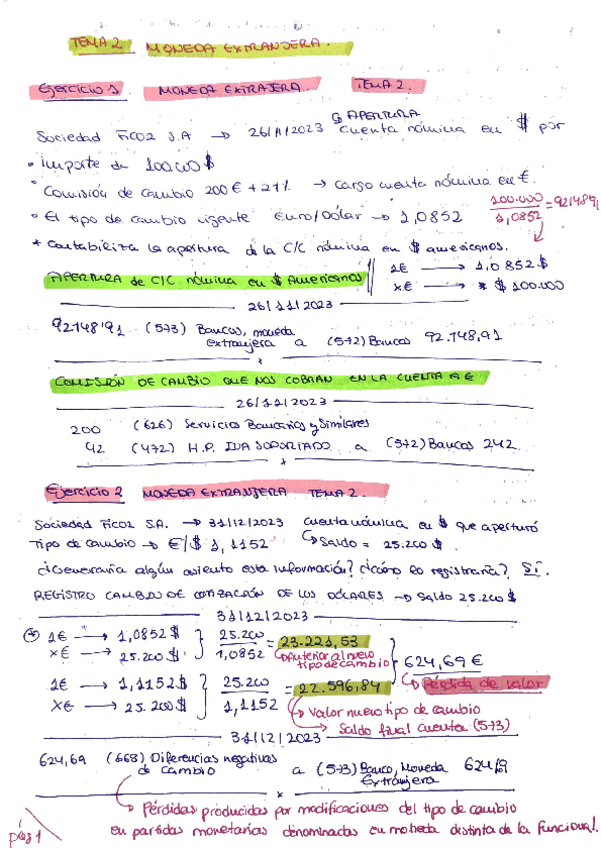 TEMA 2 MONEDA EXTRANJERA.
Ejercicio 1 MONEDA EXTRAJERA. TEMA 2.
↳ APERTURA
Sociedad FICO2 S.A → 26/11/2023 cuenta nómina en $ por
• importe de 100.000 $
• Comisión de cambio 200 € + 21% → cargo cuenta nómina en €.
• El tipo de cambio vigente Euro/Dólar → 1,0852 100.000 / 1,0852 = 92148,91
* Contabiliza la apertura de la C/C nómina en $ americanos.
APERTURA de C/C nómina en $ Americanos 1€ → 1,0852 $
x€ → $ 100.000
26/11/2023
92148'91 (573) Bancos, moneda extranjera a (572) Bancos 92.148,91
COMISIÓN DE CAMBIO QUE NOS COBRAN EN LA CUENTA €
26/12/2023
200 (626) Servicios Bancarios y Similares
42 (472) H.P. IVA SOPORTADO a (572) Bancos 242
Ejercicio 2 MONEDA EXTRANJERA TEMA 2.
Sociedad FICO2 S.A. → 31/12/2023 cuenta nómina en $ que aperturó
Tipo de cambio → €/$ 1,1152 ↳ Saldo = 25.200 $
¿Generaría algún asiento esta información? ¿cómo lo registraría? Sí.
REGISTRO CAMBIO DE COTIZACIÓN DE LOS DÓLARES → Saldo 25.200 $
31/12/2023
1€ → 1,0852 $ 25.200 / 1,0852 = 23.221,53
x€ → 25.200 $ ↳ Anterior al nuevo tipo de cambio
624,69 €
↳ Pérdida de valor
1€ → 1,1152 $ 25.200 / 1,1152 = 22.596,84
x€ → 25.200 $ ↳ Valor nuevo tipo de cambio
↳ Saldo final cuenta (573)
31/12/2023
624,69 (668) Diferencias negativas de cambio a (573) Banco, Moneda Extranjera 624,69
↳ Pérdidas producidas por modificaciones del tipo de cambio
en partidas monetarias denominadas en moneda distinta de la funcional.
pág 1